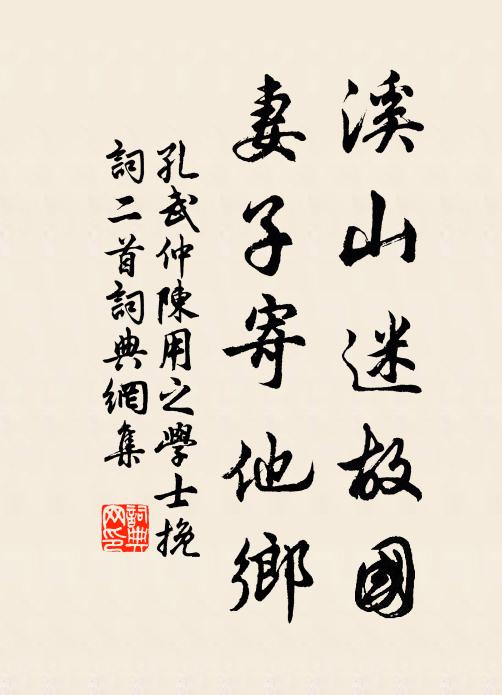 溪山迷故國
妻子寄他鄉
孔武仲陳用之學士挽
詞二首詞典網集
詞典网印